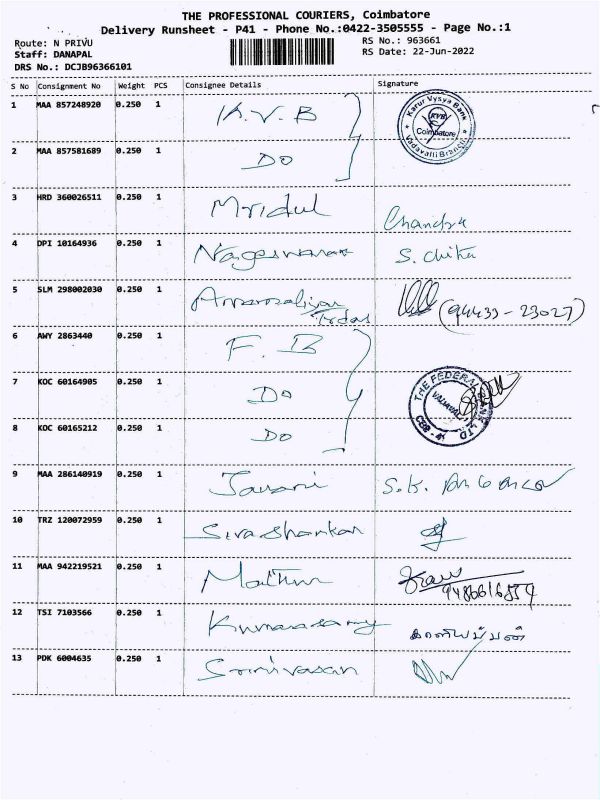 THE PROFESSIONAL COURIERS, Coimbatore
Delivery Runsheet - P41 - Phone No.:0422-3505555 - Page No.:1
Route: N PRIVU
RS No.: 963661
Staff: DANAPAL
RS Date: 22-Jun-2022
DRS No.: DCJB96366101
S No Consignment No Weight PCS Consignee Details Signature
1 MAA 857248920 0.250 1 K.V.B
Karur Vysya Bank
KVB
Coimbatore
Vadavalli Branch
2 MAA 857581689 0.250 1 DO
3 HRD 360026511 0.250 1 Mridul Chandra
4 DPI 10164936 0.250 1 Nageswaran S. Chitra
5 SLM 298002030 0.250 1 (94433-23027)
6 AWY 2863440 0.250 1 F. B
7 KOC 60164905 0.250 1 DO
THE FEDERAL BANK LTD
8 KOC 60165212 0.250 1 DO
9 MAA 286140919 0.250 1 Janani S.K.
10 TRZ 120072959 0.250 1 Sivashankar
11 MAA 942219521 0.250 1
12 TSI 7103566 0.250 1 Kumarasamy
13 PDK 6004635 0.250 1 Srinivasan